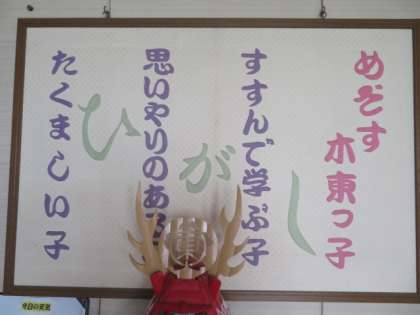 めざす木東っ子
すすんで学ぶ子
思いやりのある
たくましい子
ひがし
今日の天気